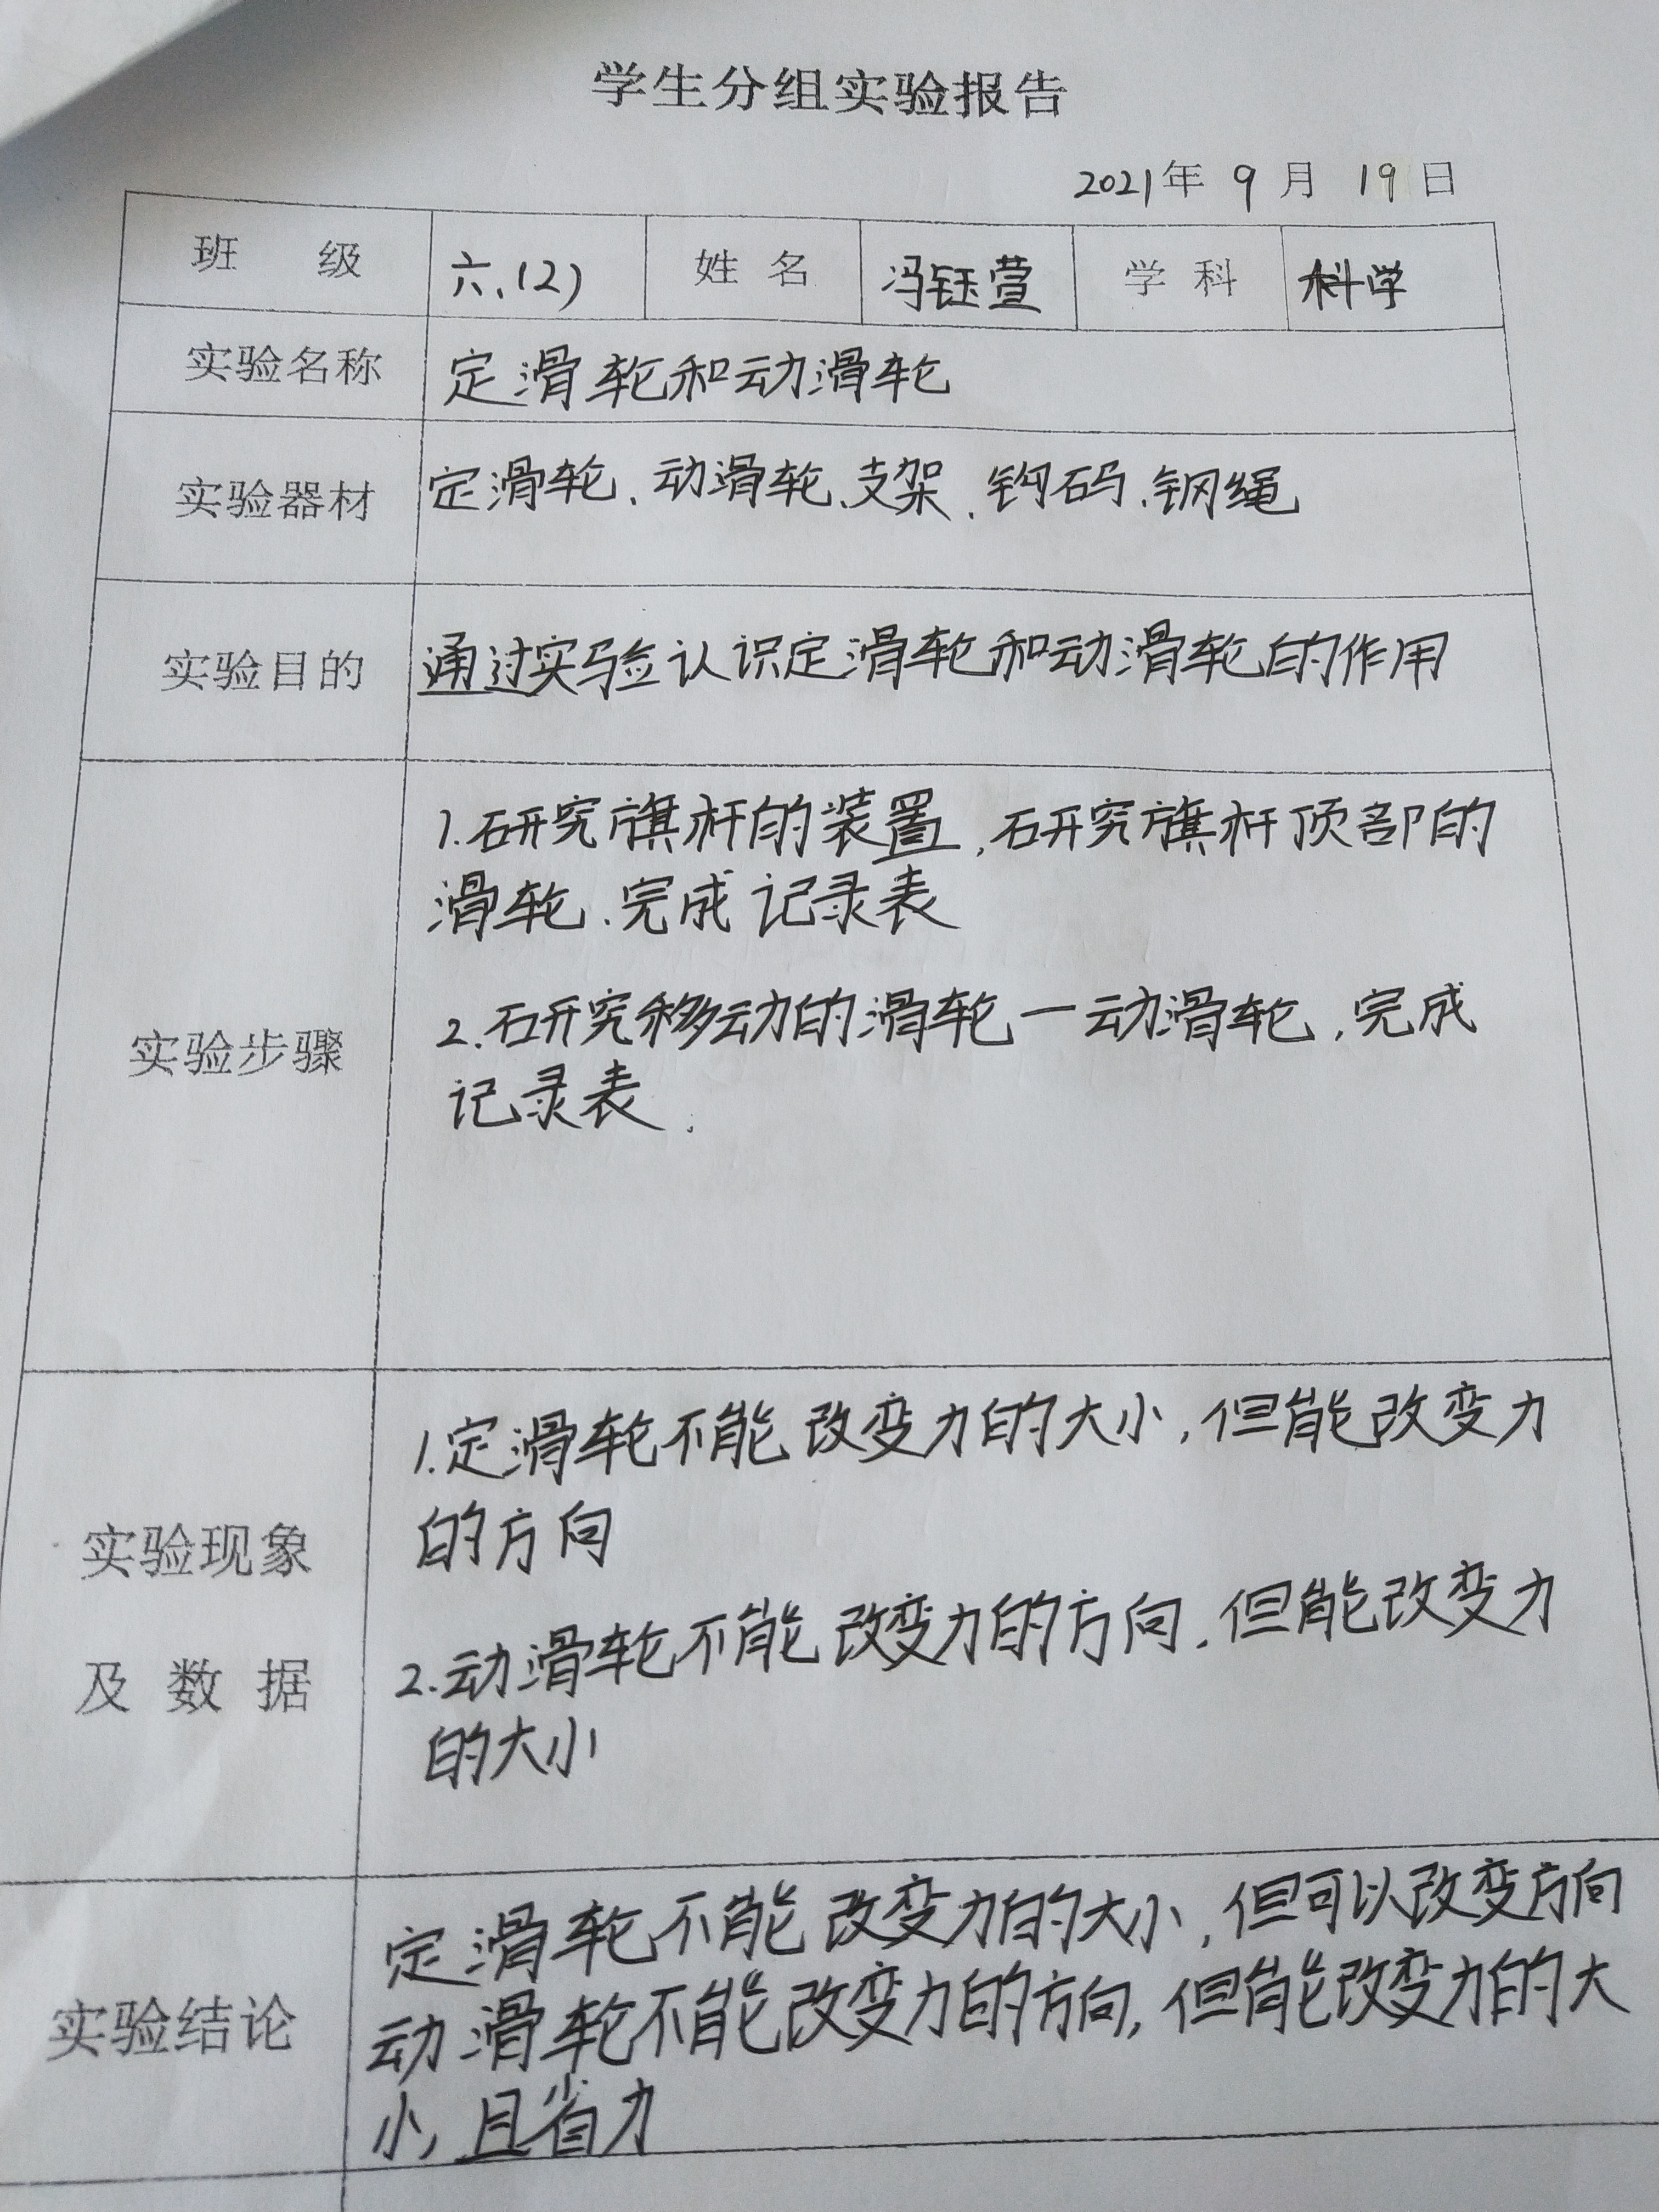 学生分组实验报告
2021年 9 月 19日
班 级 六、(2) 姓 名 冯钰萱 学 科 科学
实验名称 定滑轮和动滑轮
实验器材 定滑轮、动滑轮、支架、钩码、钢绳
实验目的 通过实验认识定滑轮和动滑轮的作用
1.研究旗杆的装置,研究旗杆顶部的
滑轮.完成记录表
实验步骤
2.研究移动的滑轮一动滑轮,完成
记录表.
1.定滑轮不能改变力的大小,但能改变力
的方向
实验现象
及 数 据
2.动滑轮不能改变力的方向.但能改变力
的大小
实验结论
定滑轮不能改变力的大小,但可以改变方向
动滑轮不能改变力的方向,但能改变力的大
小,且省力